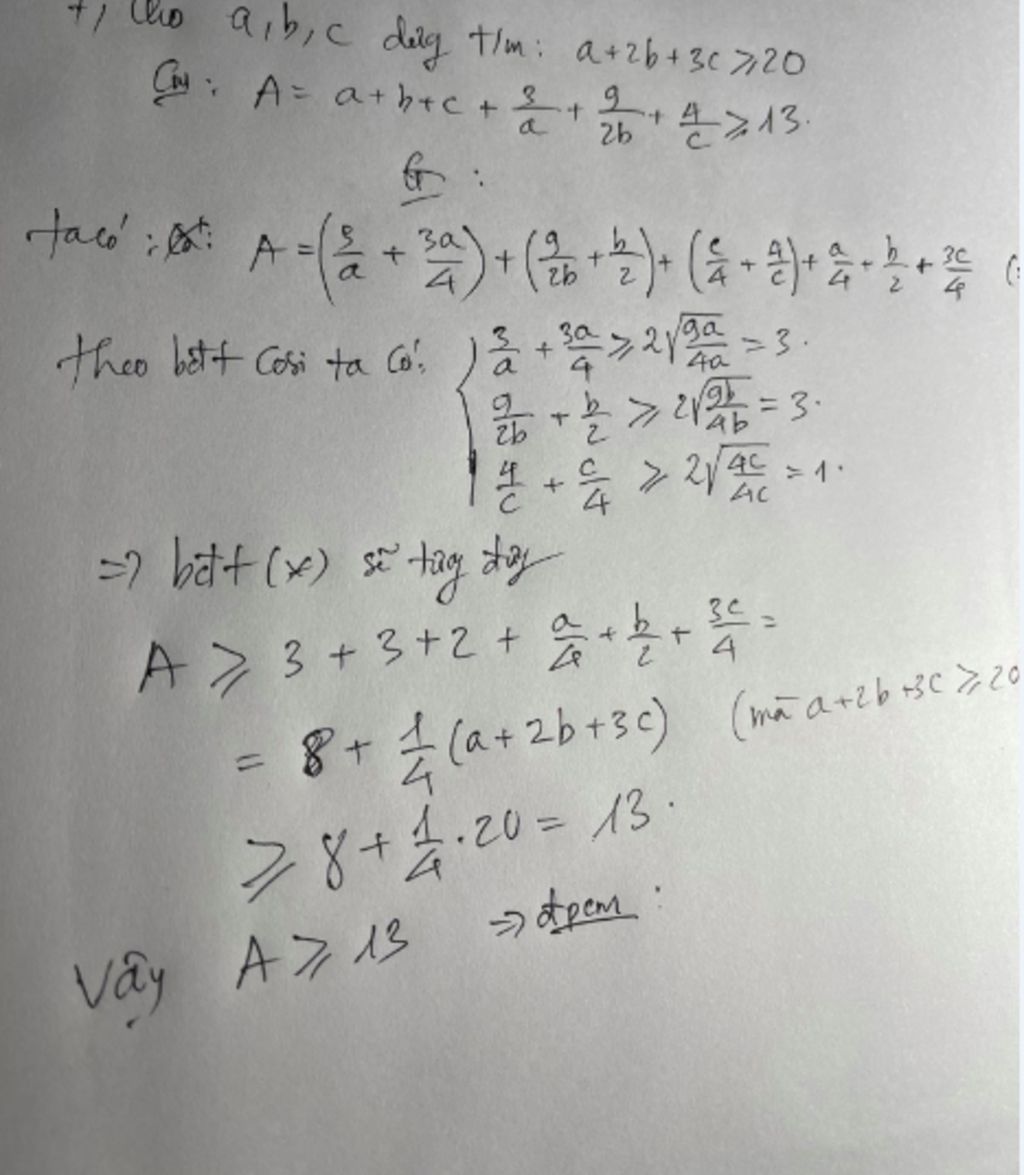 7) Cho a, b, c dương t/m: a+2b+3c ≥ 20
Cm: A = a+b+c + 3/a + 9/2b + 4/c ≥ 13.
G:
ta có: A = (3/a + 3a/4) + (9/2b + b/2) + (c/4 + 4/c) + a/4 + b/2 + 3c/4 (
theo bđt Cosi ta có: { 3/a + 3a/4 ≥ 2√(9a/4a) = 3.
9/2b + b/2 ≥ 2√(9b/4b) = 3.
4/c + c/4 ≥ 2√(4c/4c) = 1.
=> bđt (*) sẽ tương đương
A ≥ 3 + 3 + 2 + a/4 + b/2 + 3c/4 =
= 8 + 1/4 (a+2b+3c) (mà a+2b+3c ≥ 20
≥ 8 + 1/4 . 20 = 13.
Vậy A ≥ 13 => đpcm